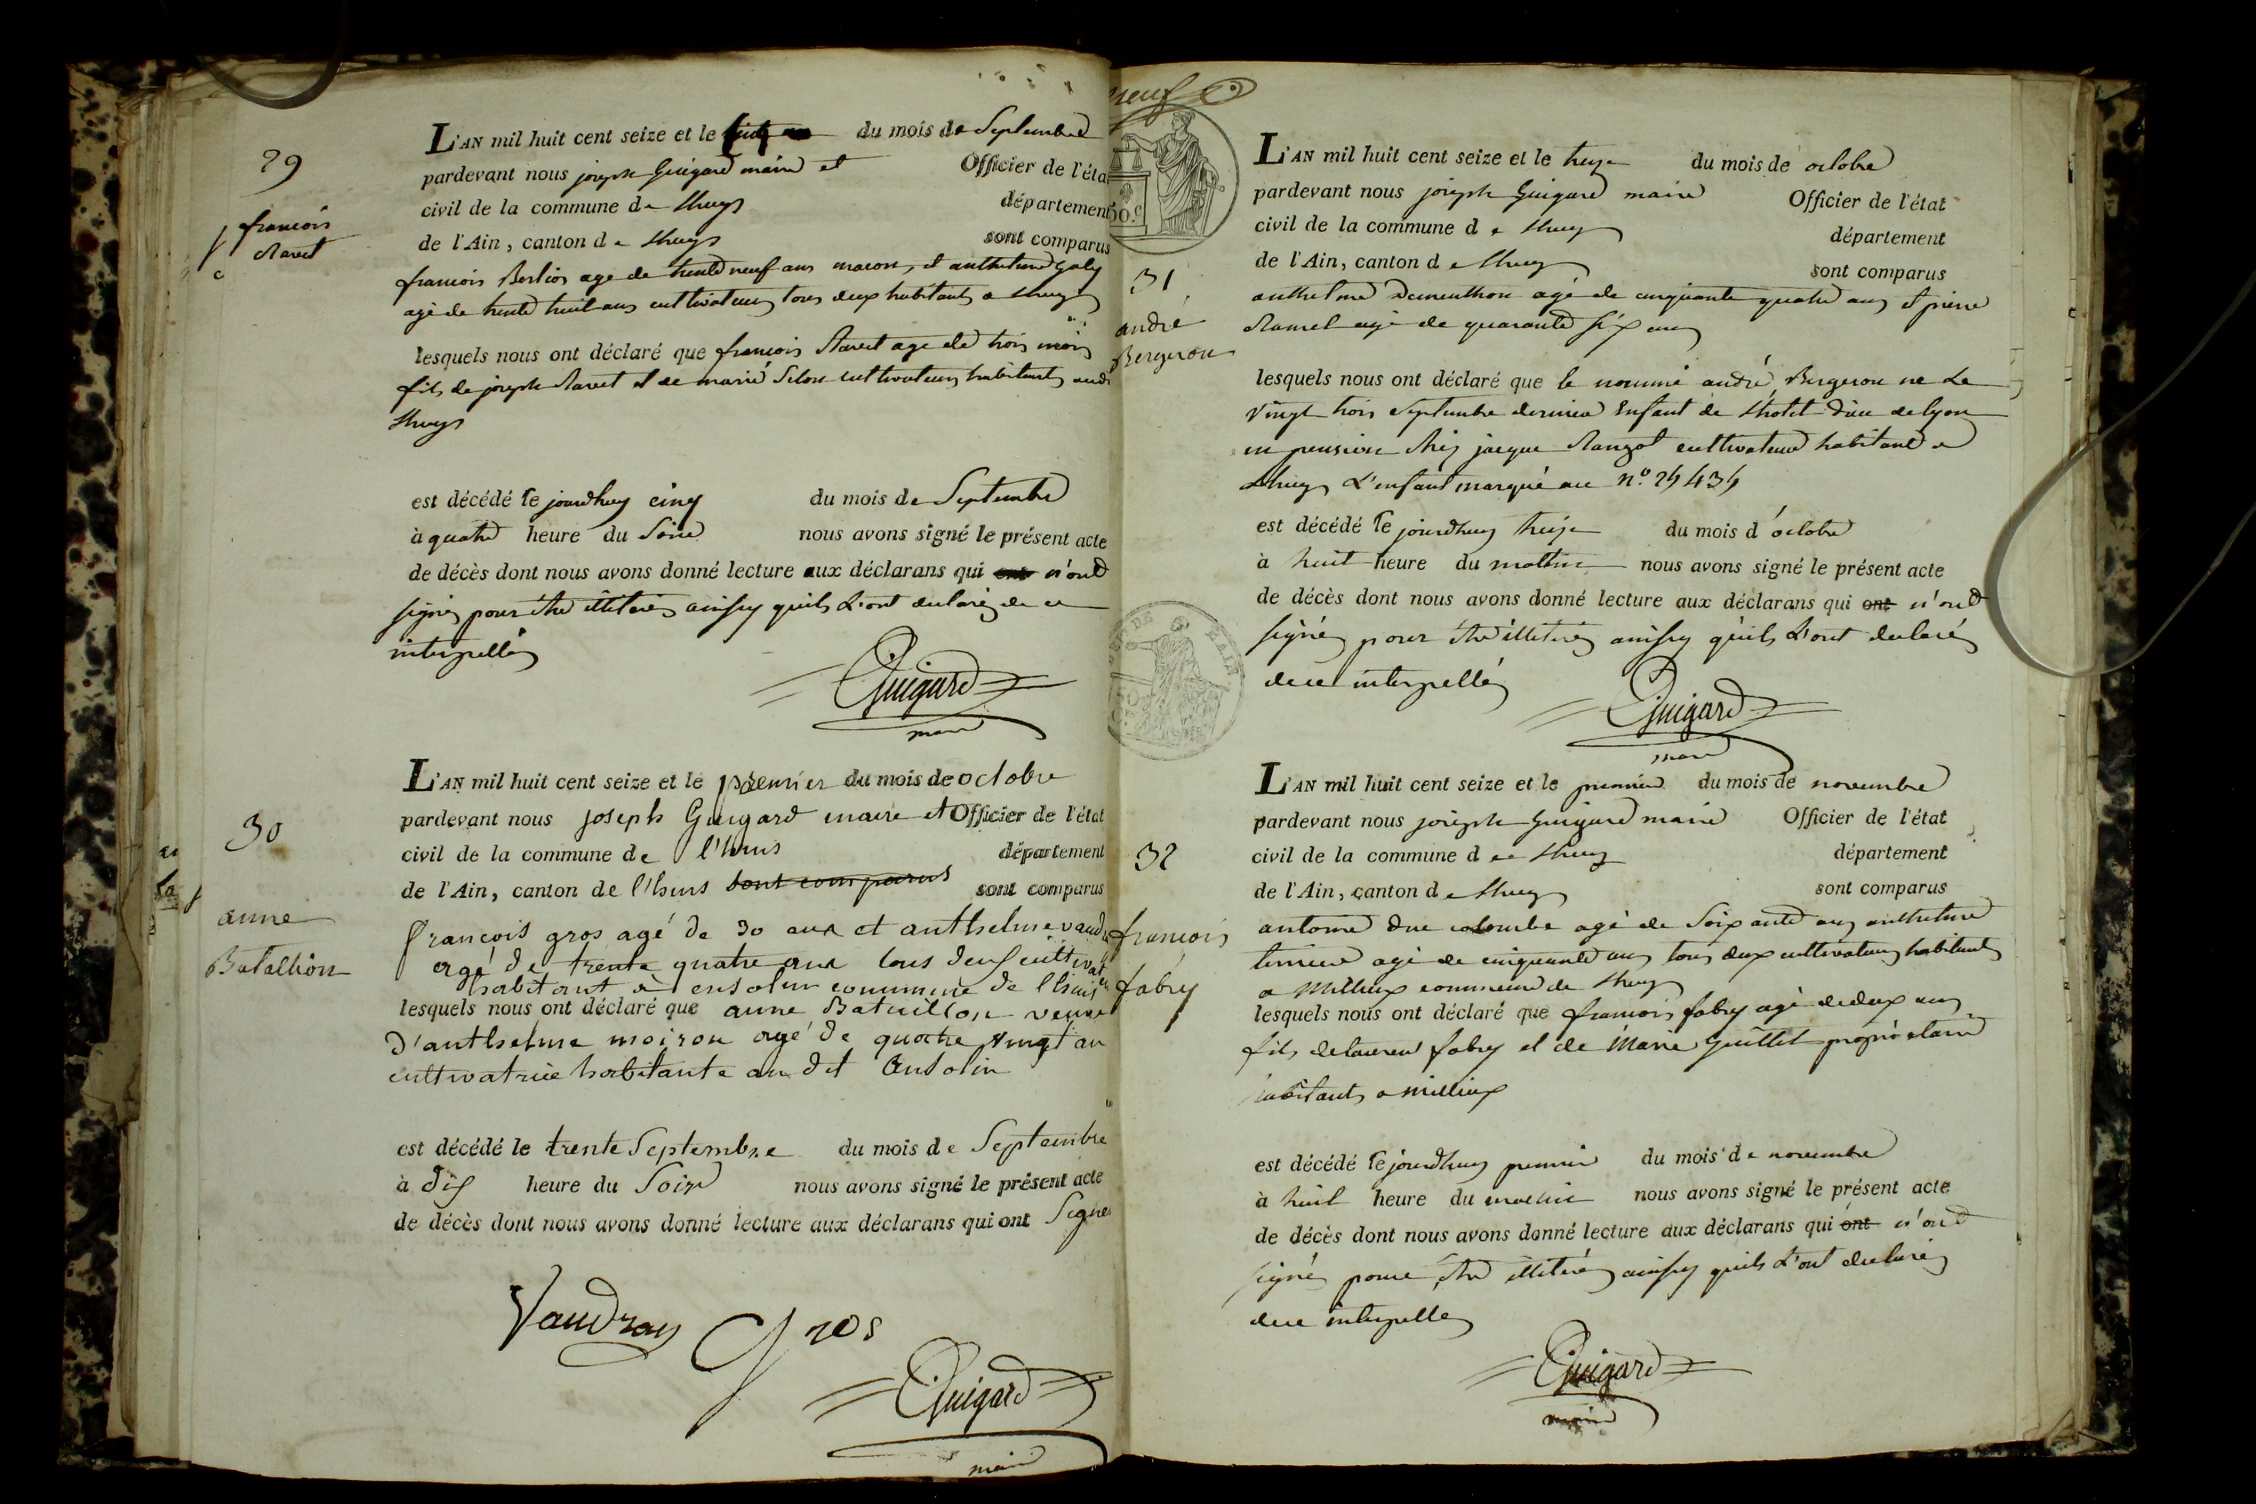 29
françois
Ravet
L'AN mil huit cent seize et le du mois de Septembre
pardevant nous joseph Guigard maire et Officier de l'éta
civil de la commune de Lhuys département
de l'Ain, canton de Lhuys sont comparus
françois Berlioz age de trente neuf ans macon, et anthelme Galy
agé de trente huit ans cultivateurs tous deux habitants a Lhuys
lesquels nous ont déclaré que françois Ravet age de trois mois
fils de joseph Ravet et de marie cultivateurs habitants audi
Lhuys
est décédé le jourdhuy cinq du mois de Septembre
à quatre heure du Soire nous avons signé le présent acte
de décès dont nous avons donné lecture aux déclarans qui ont n'ont
signés pour être illiterés ainsy quils L'ont declarés de ce
interpellés
Guigard
maire
30
anne
Batallion
L'AN mil huit cent seize et le premier du mois de octobre
pardevant nous joseph Guigard maire et Officier de l'état
civil de la commune de l'huis département
de l'Ain, canton de l'huis sont comparus sont comparus
françois gros agé de 30 ans et anthelme vaudr
agé de trente quatre ans tous deux cultivat
habitant à ensolin commune de l'huis
lesquels nous ont déclaré que anne Bataillon veuve
d'anthelme moiron agé de quatre vingt an
cultivatrice habitante au dit Ansolin
est décédé le trente Septembre du mois de Septembre
à dix heure du Soir nous avons signé le présent acte
de décès dont nous avons donné lecture aux déclarans qui ont Signé
Vaudray Gros
Guigard
maire
neuf
50.c
31
andré
Bergeron
L'AN mil huit cent seize et le treize du mois de octobre
pardevant nous joseph Guigard maire Officier de l'état
civil de la commune de Lhuys département
de l'Ain, canton de Lhuys sont comparus
anthelme Dementhon agé de cinquante quatre ans et pierre
Ramel agé de quarante six ans
lesquels nous ont déclaré que le nommé andré Bergeron ne Le
vingt trois Septembre dernier Enfant de Lhotel dieu de lyon
en pension chez jacque Rangot cultivateur habitant a
Lhuys L'enfant marqué au n.º 24434
est décédé le jourdhuy treize du mois d'octobre
à huit heure du mattin nous avons signé le présent acte
de décès dont nous avons donné lecture aux déclarans qui ont n'ont
signés pour être illiterés ainsy quils L'ont declarés
de ce interpellés
Guigard
maire
32
françois
fabry
L'AN mil huit cent seize et le premier du mois de novembre
pardevant nous joseph Guigard maire Officier de l'état
civil de la commune de Lhuys département
de l'Ain, canton de Lhuys sont comparus
antoine Ducolombe agé de Soixante ans anthelme
agé de cinquante ans tous deux cultivateurs habitants
a Millieux commune de Lhuys
lesquels nous ont déclaré que françois fabry agé de deux ans
fils de laurent fabry et de Marie Guillet propriétaire
habitants a millieux
est décédé le jourdhuy premier du mois de novembre
à huit heure du matin nous avons signé le présent acte
de décès dont nous avons donné lecture aux déclarans qui ont n'ont
signés pour être illiterés ainsy quils L'ont declarés
de ce interpellés
Guigard
maire